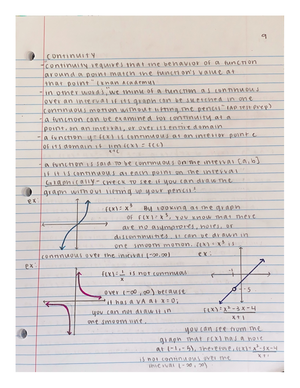 9
continuity
- continuity requires that the behavior of a function
around a point match the function's value at
that point" (Khan Academy)
- in other words, "we think of a function as continuous
over an interval if its graph can be sketched in one
continuous motion without lifting the pencil"
- a function can be examined for continuity at a
point, on an interval, or over its entire domain
- a function y=f(x) is continuous at an interior point c
of its domain if lim f(x) = f(c)
x→c
a function is said to be continuous on the interval (a,b)
if it is continuous at each point on the interval
Graphically - check to see if you can draw the
graph without lifting up your pencil!
ex:
f(x)= x³ By looking at the graph
of f(x)= x³, you know that there
are no asymptotes, holes, or
discontinuities. It can be drawn in
one smooth motion. f(x)= x³ is
continuous over the interval (-∞,∞)
ex:
f(x)= 1/x is not continuous
over (-∞,∞) because
it has a VA at x=0;
you can not draw it in
one smooth line.
ex:
-1
-5
f(x)= x²-3x-4
x+1
you can see from the
graph that f(x) has a hole
at (-1,-5), therefore, f(x)= x²-3x-4
x+1
is not continuous over the
interval (-∞,∞)